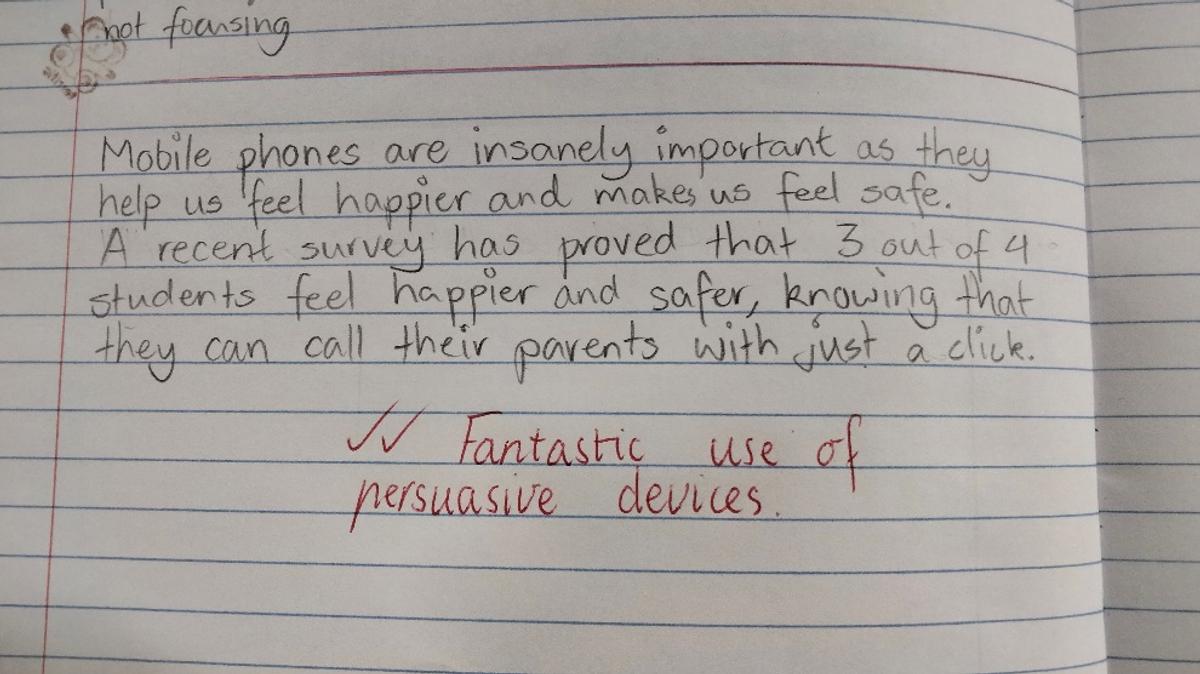 not focusing
Mobile phones are insanely important as they
help us feel happier and makes us feel safe.
A recent survey has proved that 3 out of 4
students feel happier and safer, knowing that
they can call their parents with just a click.
✓✓ Fantastic use of
persuasive devices.